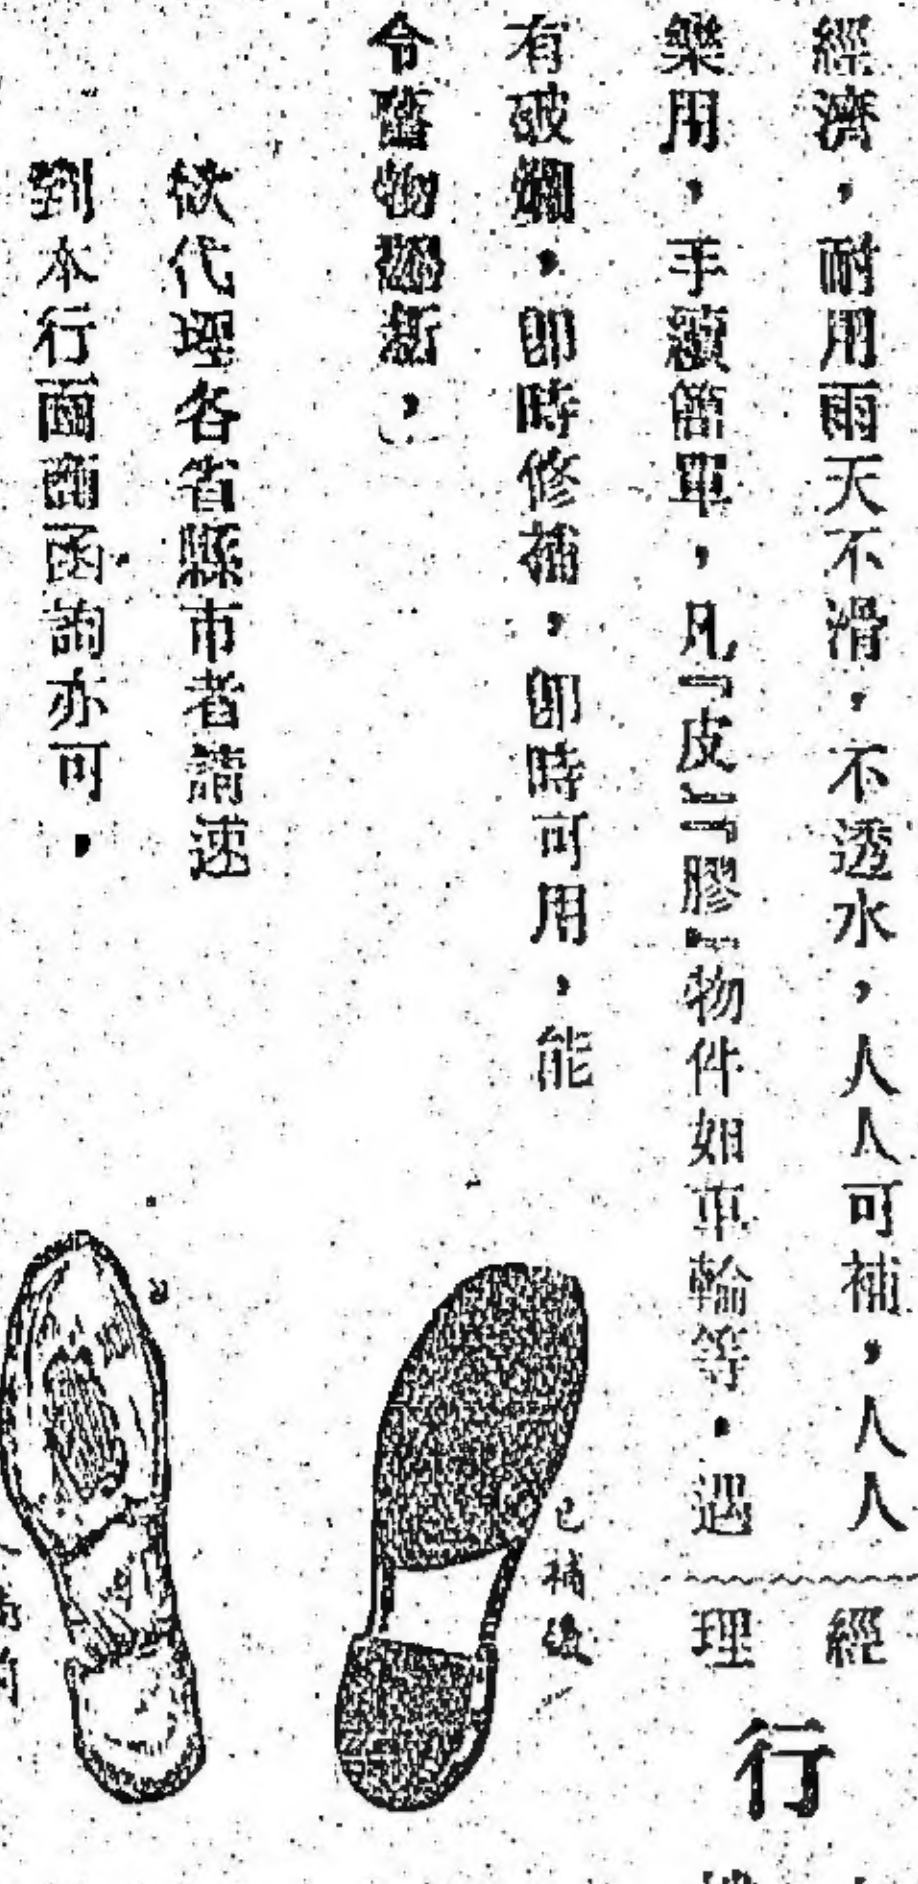 經濟，耐用雨天不滑，不透水，人人可補，人人
樂用，手續簡單，凡『皮』『膠』物件如車輪等，遇
有破爛，即時修補，即時可用，能
令舊物過新，
欲代理各省縣市者請速
到本行面商函詢亦可．
已補後
經
理
行